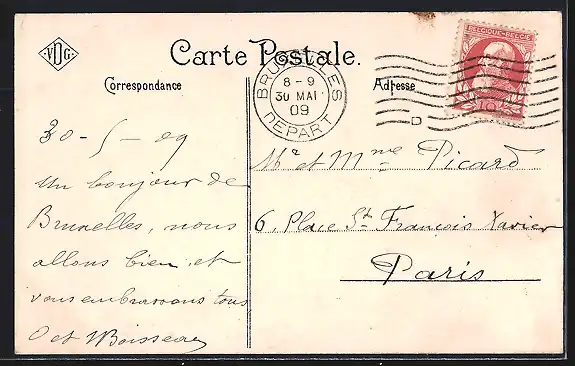 V.D.G.
Carte Postale.
Correspondance
Adresse
BRUXELLES
8 – 9
30 MAI
09
DEPART
D
BELGIQUE-BELGIË
10
30 - 5 - 09
Un bonjour de
Bruxelles, nous
allons bien et
vous embrassons tous
O et Boisseau
Mr et Mme Picard
6, Place St François Xavier
Paris